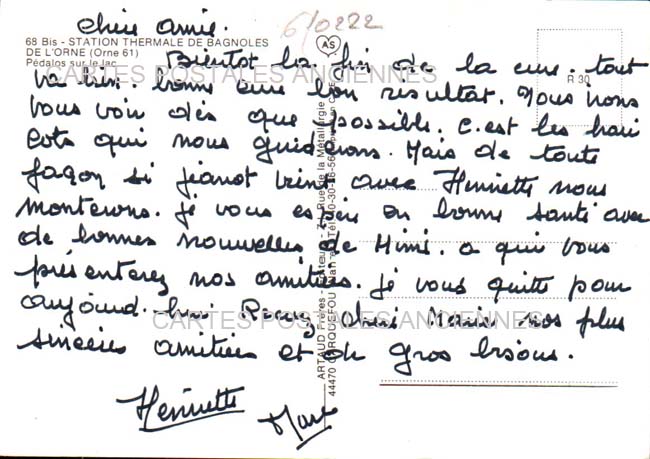 chère amie.
6/0222
68 Bis - STATION THERMALE DE BAGNOLES
DE L'ORNE (Orne 61)
Pédalos sur le lac
AS
R 30
Bientot la fin de la cure. tout
va bien. bonne cure bon resultat. Nous irons
vous voir dès que possible. c'est les hari
cots qui nous guiderons. Mais de toute
façon si jeanot vient avec Henriette nous
monterons. je vous espère en bonne santé avec
de bonnes nouvelles de Mimi. a qui vous
présenterez nos amitiés. je vous quitte pour
aujourd-hui Recevez chère Marie nos plus
sincères amitiées et de gros bisous.
Henriette
Marc
ARTAUD Frères - Editeurs - Rue de la Métallurgie
44470 CARQUEFOU
CARTES POSTALES ANCIENNES
CARTES POSTALES ANCIENNES